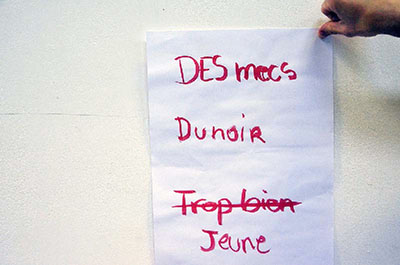 DES mecs
Dunoir
Trop bien
Jeune